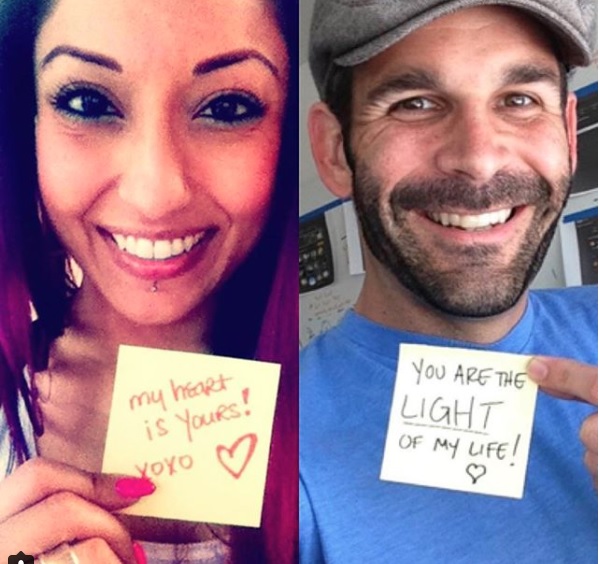 my heart
is yours!
xoxo ♡
YOU ARE THE
LIGHT
OF MY LIFE!
♡